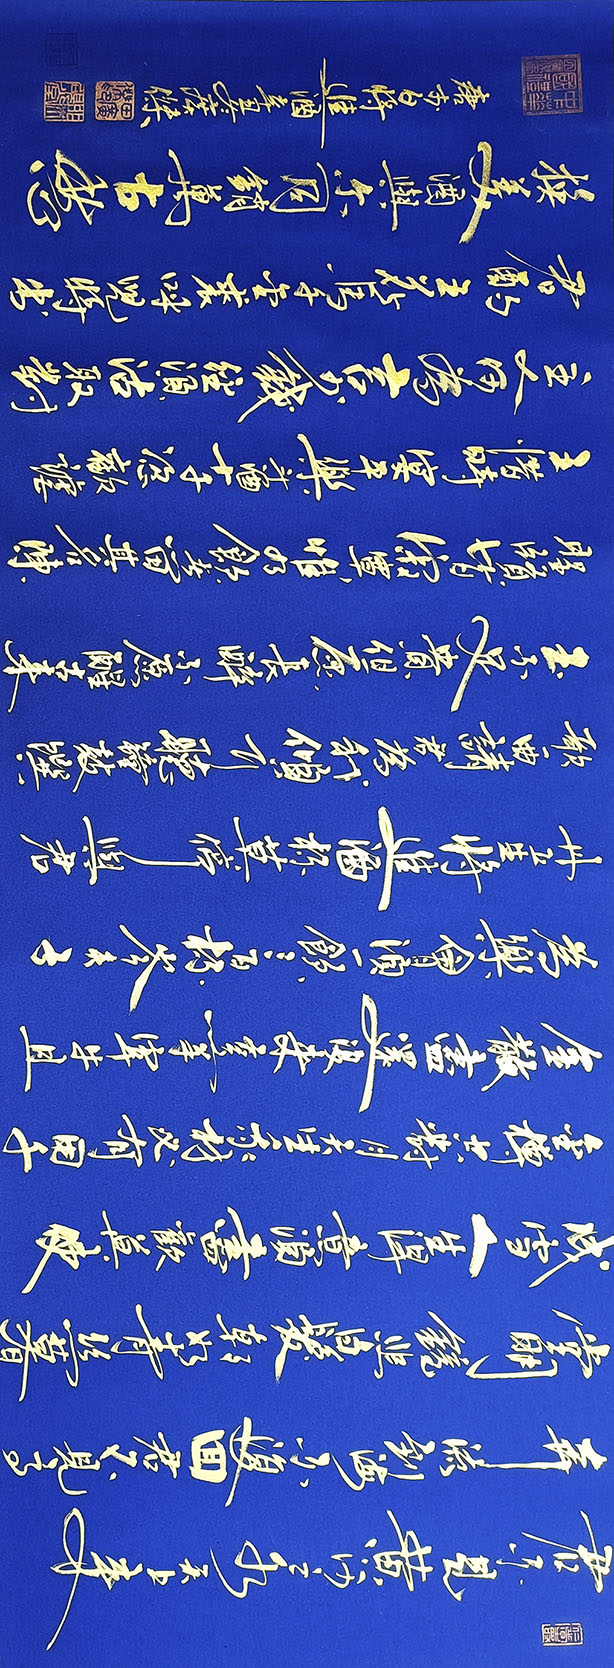 君不見黃河之水天上來
奔流到海不復回君不見高
堂明鏡悲白髮朝如青絲暮
成雪人生得意須盡歡莫使
金樽空對月天生我材必有用千
金散盡還復來烹羊宰牛且
為樂會須一飲三百杯岑夫子
丹丘生將進酒杯莫停與君
歌一曲請君為我傾耳聽鐘鼓饌
玉不足貴但願長醉不願醒古來
聖賢皆寂寞惟有飲者留其名陳
王昔時宴平樂斗酒十千恣歡謔
主人何為言少錢徑須沽取對
君酌五花馬千金裘呼兒將出
換美酒與爾同銷萬古愁
唐李白將進酒